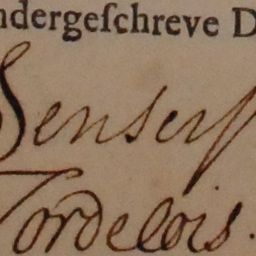 ndergeſchreve D
Senserff
Tordelois.